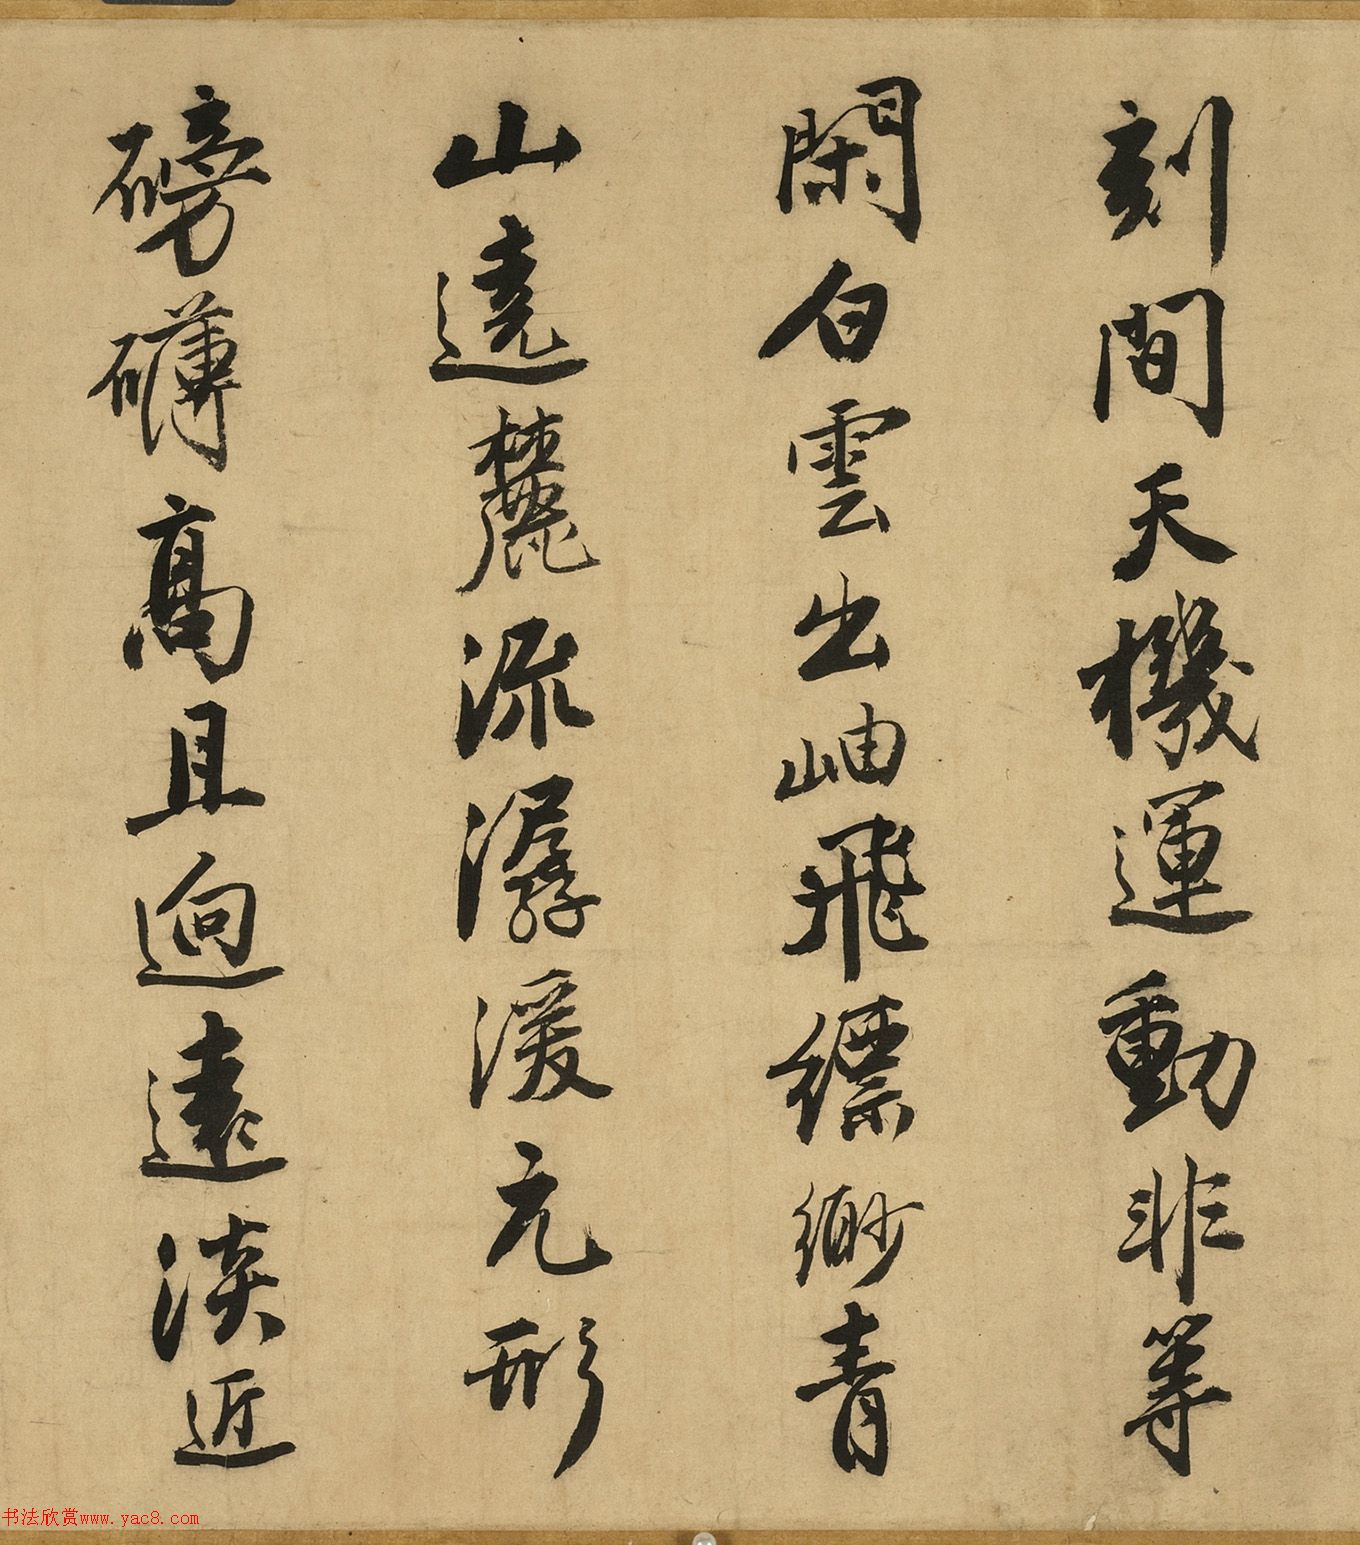 刻間天機運動非等
閑白雲出岫飛縹緲青
山遶麓流潺湲元形
磅礴高且迥遠淡近
书法欣赏www.yac8.com